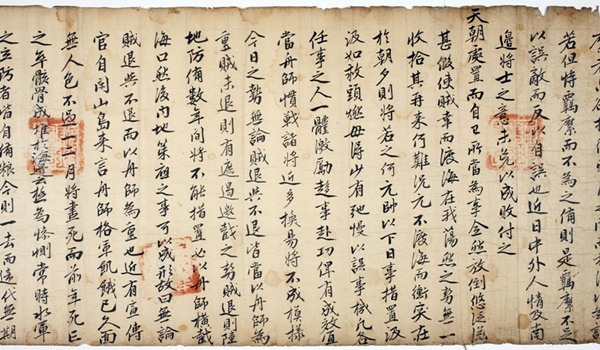 若但恃羈縻而不為之備則是羈縻不足
以誤敵而反以自誤也近日中外人情及南
邊將士之意未免以成敗付之
天朝處置而自己所當為事全然放倒悠泛滋
甚假使賊幸而渡海在我蕩然之勢無一
收拾其再來何難況元不渡海而衝突在
於朝夕則將若之何元帥以下日事措置汲
汲如救頭燃毋得少有弛慢以誤事機凡各
任事之人一體激勵趁事赴功俾有成效宜
當舟師慣戰諸將近多換易將不成模樣
今日之勢無論賊退與不退皆當以舟師為
重賊未退則有遮遏邀截之勢賊退則陸
地防備數年間將不能措置必以舟師橫截
海口然後內地策應之事可以成形故曰無論
賊退與不退而以舟師為重也近有宣傳
官自閑山島來言舟師格軍飢餓已久面
無人色不過一二月將盡死而前年死亡
之卒骸骨成堆於海極為慘惻常時水軍
之立防者皆自備粮今則一去而遞代無期